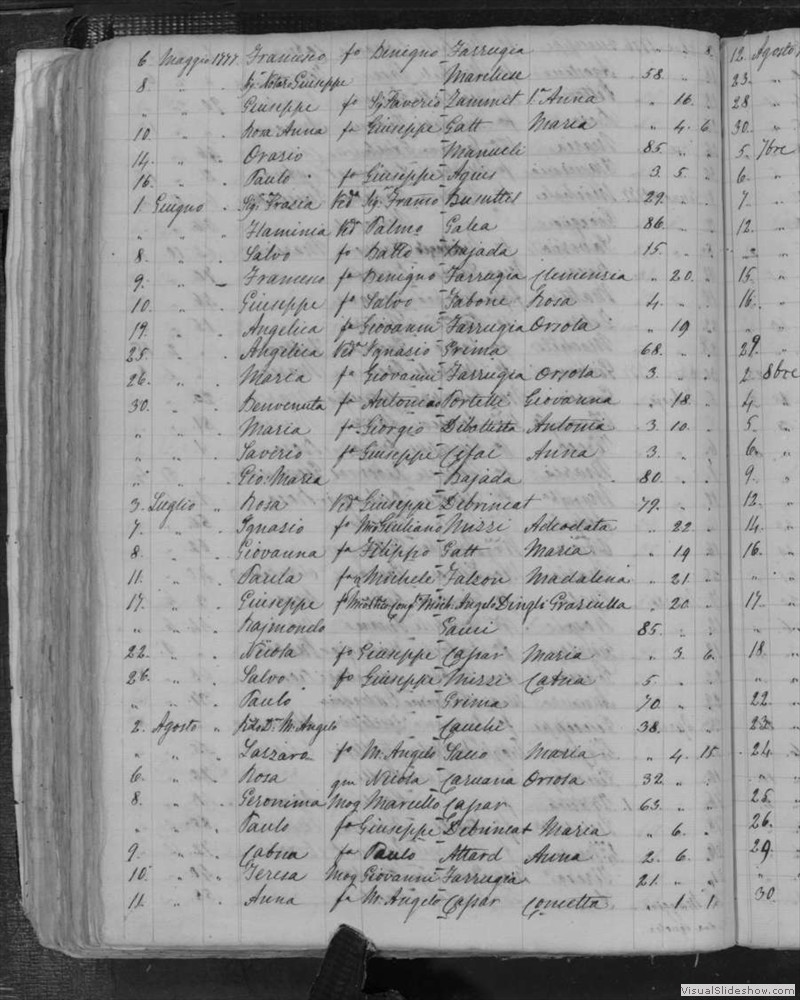 6 Maggio 1777 Francesco fo Benigno Farrugia " " 8
8 " " Sr Notaro Giuseppe Marchese 58 " "
" " Giuseppe fo Sr Saverio Zammit Sa Anna " 16 "
10 " " Rosa Anna fa Giuseppe Gatt Maria " 4 6
14 " " Orazio Manueli 85 " "
16 " " Paulo fo Giuseppe Agius 3 5 "
1 Giugno " Sigra Grazia Veda Sigr Franco Busuttil 29 " "
" " " Flaminia Ved Palmo Galea 86 " "
8 " " Salvo fo Batto Bajada 15 " "
9 " " Francesco fo Benigno Farrugia Clemensia " 20 "
10 " " Giuseppe fo Salvo Tabone Rosa 4 " "
19 " " Angelica fa Giovanni Farrugia Orsola " 19 "
25 " " Angelica Veda Ignasio Grima 68 " "
26 " " Maria fa Giovanni Farrugia Orsola 3 " "
30 " " Benvenuta fa Antonio Portelli Giovanna " 18 "
" " " Maria fa Giorgio Debattista Antonia 3 10 "
" " " Saverio fo Giuseppe Cefai Anna 3 " "
" " " Gio: Maria Bajada 80 " "
3 Luglio " Rosa Ved Giuseppe Debrincat 79 " "
7 " " Ignasio fo Giuliano Mizzi Adeodata " 22 "
8 " " Giovanna fa Filippo Gatt Maria " 19 "
11 " " Paula fa Michele Falzon Madalena " 21 "
17 " " Giuseppe Mich. Angelo Dingli Grasiulla " 20 "
" " " Rajmondo Gauci 85 "
22 " " Nicola fo Giuseppe Caspar Maria " 3 6
26 " " Salvo fo Giuseppe Mizzi Catna 5 " "
" " " Paulo Grima 70 " "
2 Agosto " M. Angelo Cauchi 38 " "
" " " Lazzaro fo M. Angelo Galio Maria " 4 15
6 " " Rosa qm Nicola Caruana Orsola 32 " "
8 " " Geronima Mog Marcello Caspar 63 " "
" " " Paulo fo Giuseppe Debrincat Maria " 6 "
9 " " Catna fa Paulo Attard Anna 2 6 "
10 " " Teresa Mog Giovanni Farrugia 21 " "
11 " " Anna fa M. Angelo Caspar Concetta " 1 1
12 Agosto
23 "
28 "
30 "
5 7bre
6 "
7 "
12 "
" "
15 "
16 "
" "
29 "
2 8bre
4 "
5 "
6 "
9 "
12 "
14 "
16 "
" "
17 "
" "
18 "
" "
22 "
23 "
24 "
" "
25 "
26 "
29 "
30 "
VisualSlideshow.com